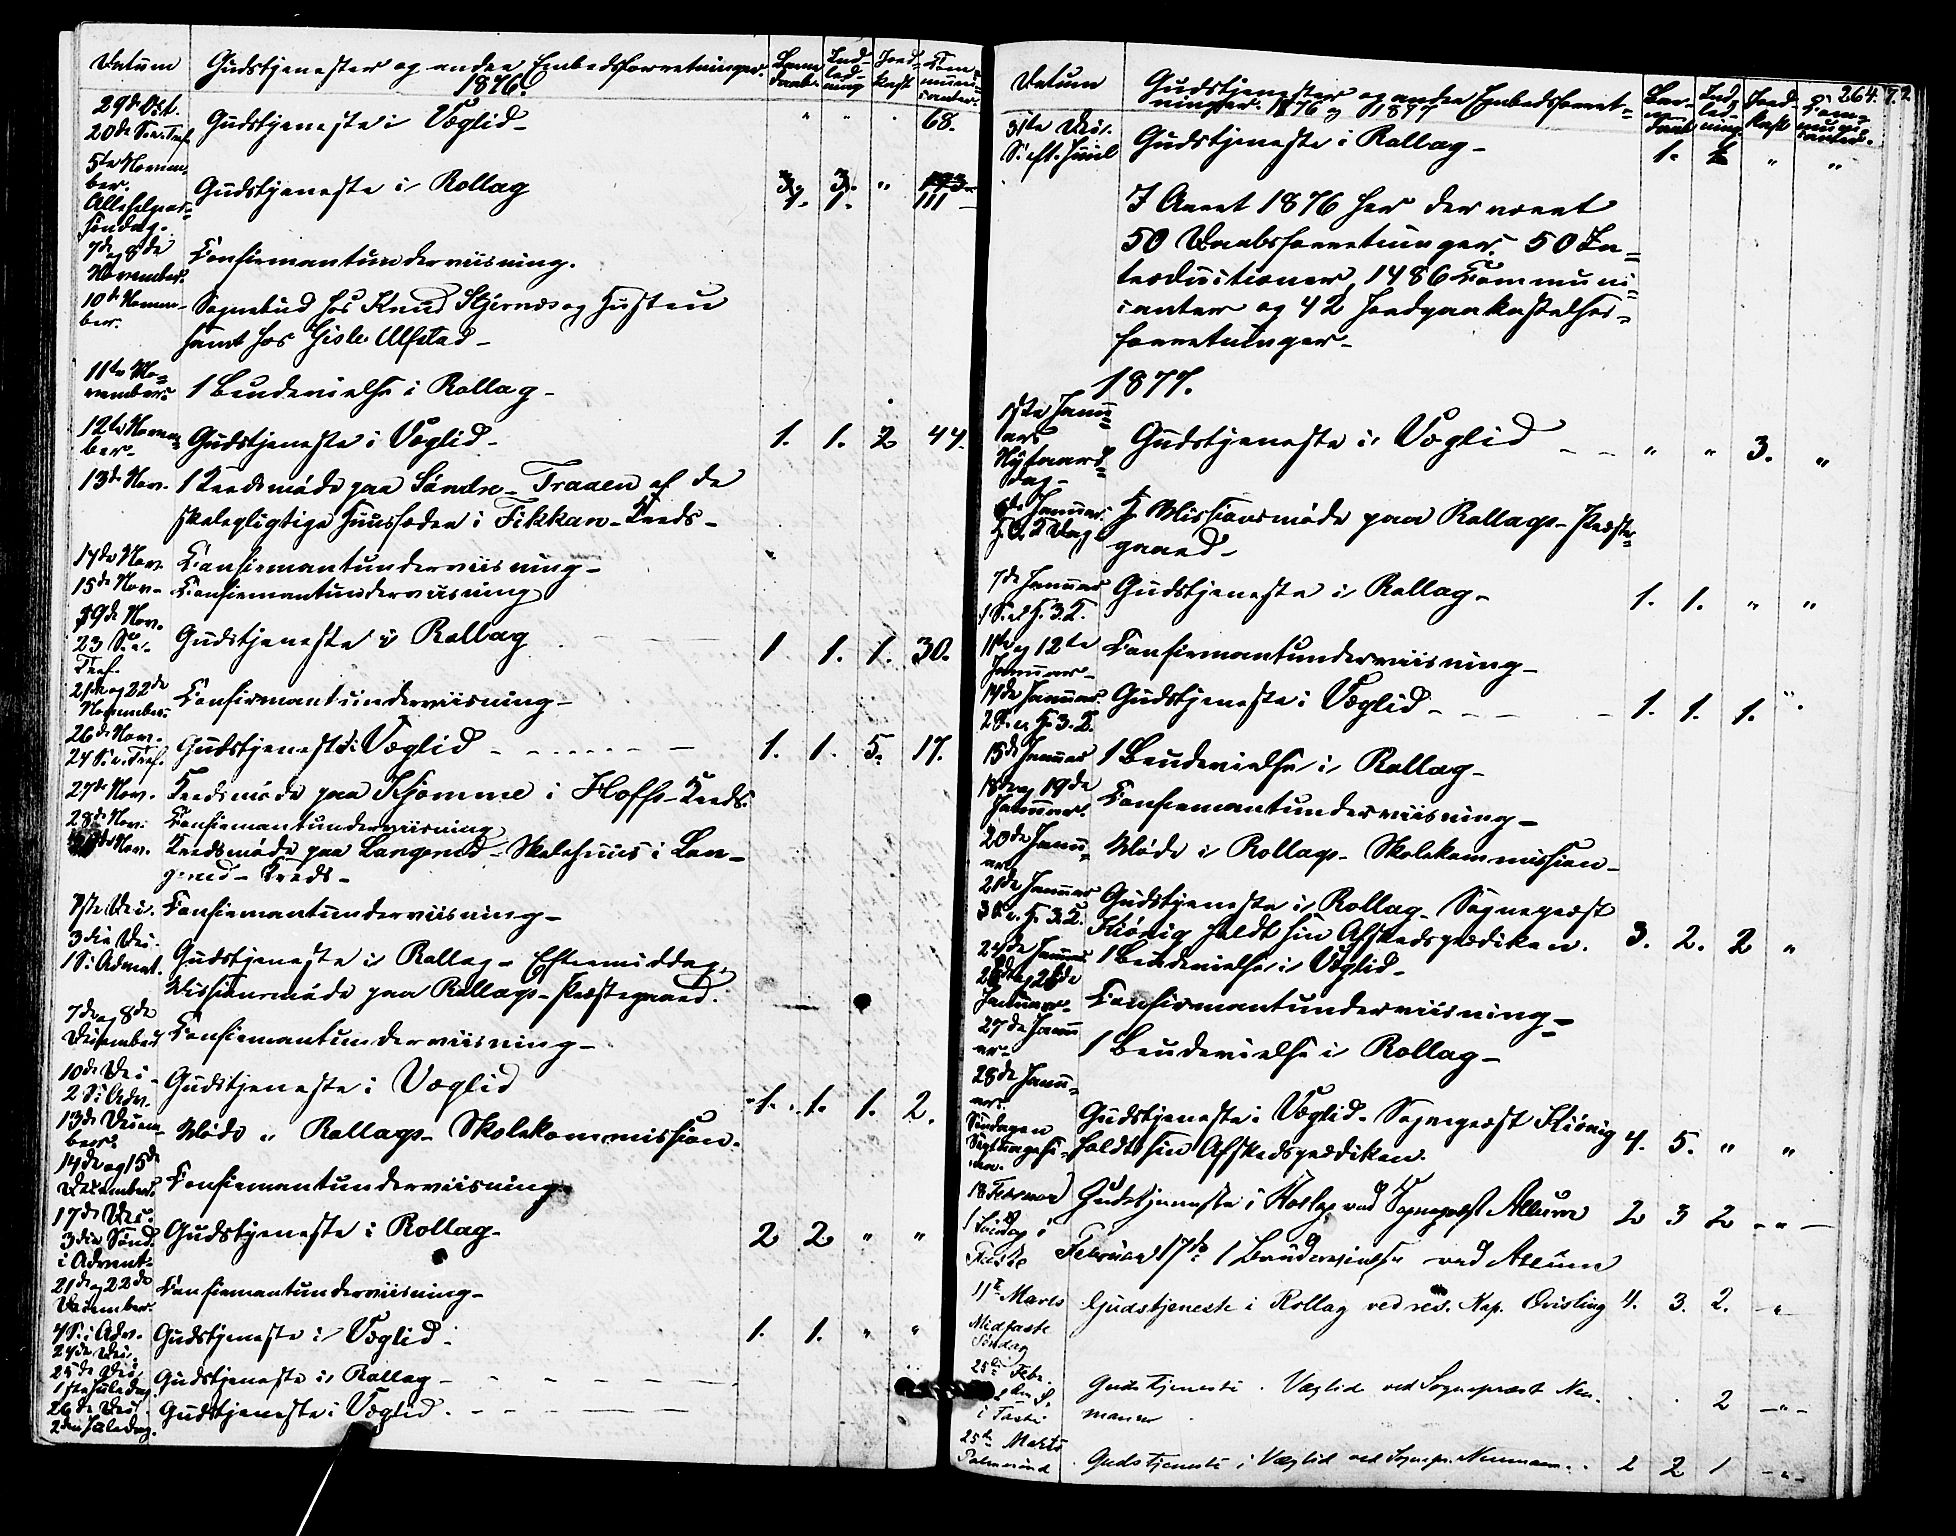 Datum
Gudstjenester og andre Embedsforretninger.
1876.
Barne
daab.
Ind-
led-
ning
Jord-
kast
Com-
muni-
canter.
29de Oct.
20de S.e.Tref.
Gudstjeneste i Væglid - " " . 68.
5te Novem-
ber.
Allehelgens-
søndag.
Gudstjeneste i Rollag
3. 3. " 193
1. 1. 111
7de og 8de
November.
Confirmantunderviisning.
10de Novem-
ber.
Sognebud hos Knud Stjernes og Hustru
samt hos Gisle Ulfstad -
11te No-
vember.
1 Brudevielse i Rollag -
12te Novem-
ber.
Gudstjeneste i Væglid - 1. 1. 2 44.
13de Nov. 1 Kredsmøde paa Søndre-Traaen af de
skolepligtige Huusfædre i Fikkan-Kreds-
14de Nov. Confirmantunderviisning -
15de Nov- Confirmantunderviisning
19de Nov.
23 S.e.
Tref.
Gudstjeneste i Rollag 1 1. 1. 30.
21de og 22de
November.
Confirmantunderviisning -
26de Nov.
24 S.e.Tref.
Gudstjeneste i Væglid - 1. 1. 5. 17.
27de Nov. Kredsmøde paa Kjømme i Hoffs-Kreds.
28de Nov. Confirmantunderviisning
Nov. Kredsmøde paa Langerud-Skolehuus i Lan-
gerud-Kreds-
1ste Dec. Confirmantunderviisning -
3die Dec.
1 S.i Advent.
Gudstjeneste i Rollag - Eftermiddag,
Missionsmøde paa Rollags-Præstegaard.
7de og 8de
December
Confirmantunderviisning -
10de Dec.
2 S.i Adv.
Gudstjeneste i Væglid 1. 1. 1. 2.
13de Decem-
ber.
Møde i Rollags-Skolekommission.
14de og 15de
December.
Confirmantunderviisning
17de Dec.
3die Sønd.
i Advent.
Gudstjeneste i Rollag - 2 2 " "
21de og 22de
December.
Confirmantunderviisning -
4 S.i Adv.
24de Dec.
Gudstjeneste i Væglid. 1. 1. " "
25de Dec.
1ste Juledag.
Gudstjeneste i Rollag -
26de Dec.
2den Juledag.
Gudstjeneste i Væglid.
264.
Datum
Gudstjenester og andre Embedsforret-
ninger. 1876 og 1877
Bar-
ne-
daab
Ind-
led-
ning.
Jord-
kast
Com-
muni-
canter.
31te Dec.
S. eft. Juul
Gudstjeneste i Rollag - 1. 1 " "
I Aaret 1876 har der været
50 Daabsforretninger, 50 In-
troductioner, 1486 Communi-
canter og 42 Jordpaakastelses-
forretninger -
1877.
1ste Janu-
ar
Nytaars-
dag-
Gudstjeneste i Væglid - - " " 3. "
6te Januar.
H.3.K. Dag
Missionsmøde paa Rollags-Præste-
gaard-
7de Januar
1 S.e. H.3.K.
Gudstjeneste i Rollag - 1. 1. " "
11te og 12te
Januar-
Confirmantunderviisning -
14de Januar.
2 S.e. H.3.K.
Gudstjeneste i Væglid - - - - 1. 1. 1. "
15de Januar 1 Brudevielse i Rollag -
18de og 19de
Januar.
Confirmantunderviisning -
20de Janu-
ar
Møde i Rollags-Skolekommission -
21de Januar
3 S.e. H.3.K.
Gudstjeneste i Rollag - Sognepræst
Hiönig holdt sin Afskedsprædiken. 3. 2. 2 "
24de Januar 1 Brudevielse i Væglid -
25de og 26de
Januar-
Confirmantunderviisning -
27de Janu
ar-
1 Brudevielse i Rollag -
28de Janu-
ar.
Søndagen
Septuagesi-
ma.
Gudstjeneste i Væglid - Sognepræst Hiönig
holdt sin Afskedsprædiken. 4. 5. " "
18 Februar
1 Søndag i
Faste
Gudstjeneste i Rollag ved Sognepræst Allum 2 3 2 - " -
Februar 17de 1 Brudevielse ved Allum
11te Marts
Midfaste
Søndag
Gudstjeneste i Rollag ved res. Kap. Qvisling 4. 3. 2. - " -
25de Febr.
2den S.
i Faste
Gudstjeneste i Væglid ved Sognepræst Neu-
mann . . . 2 - " -
25de Marts
Palmesønd
Gudstjeneste i Væglid ved Sognepr. Neumann. 2 2 1 - " -